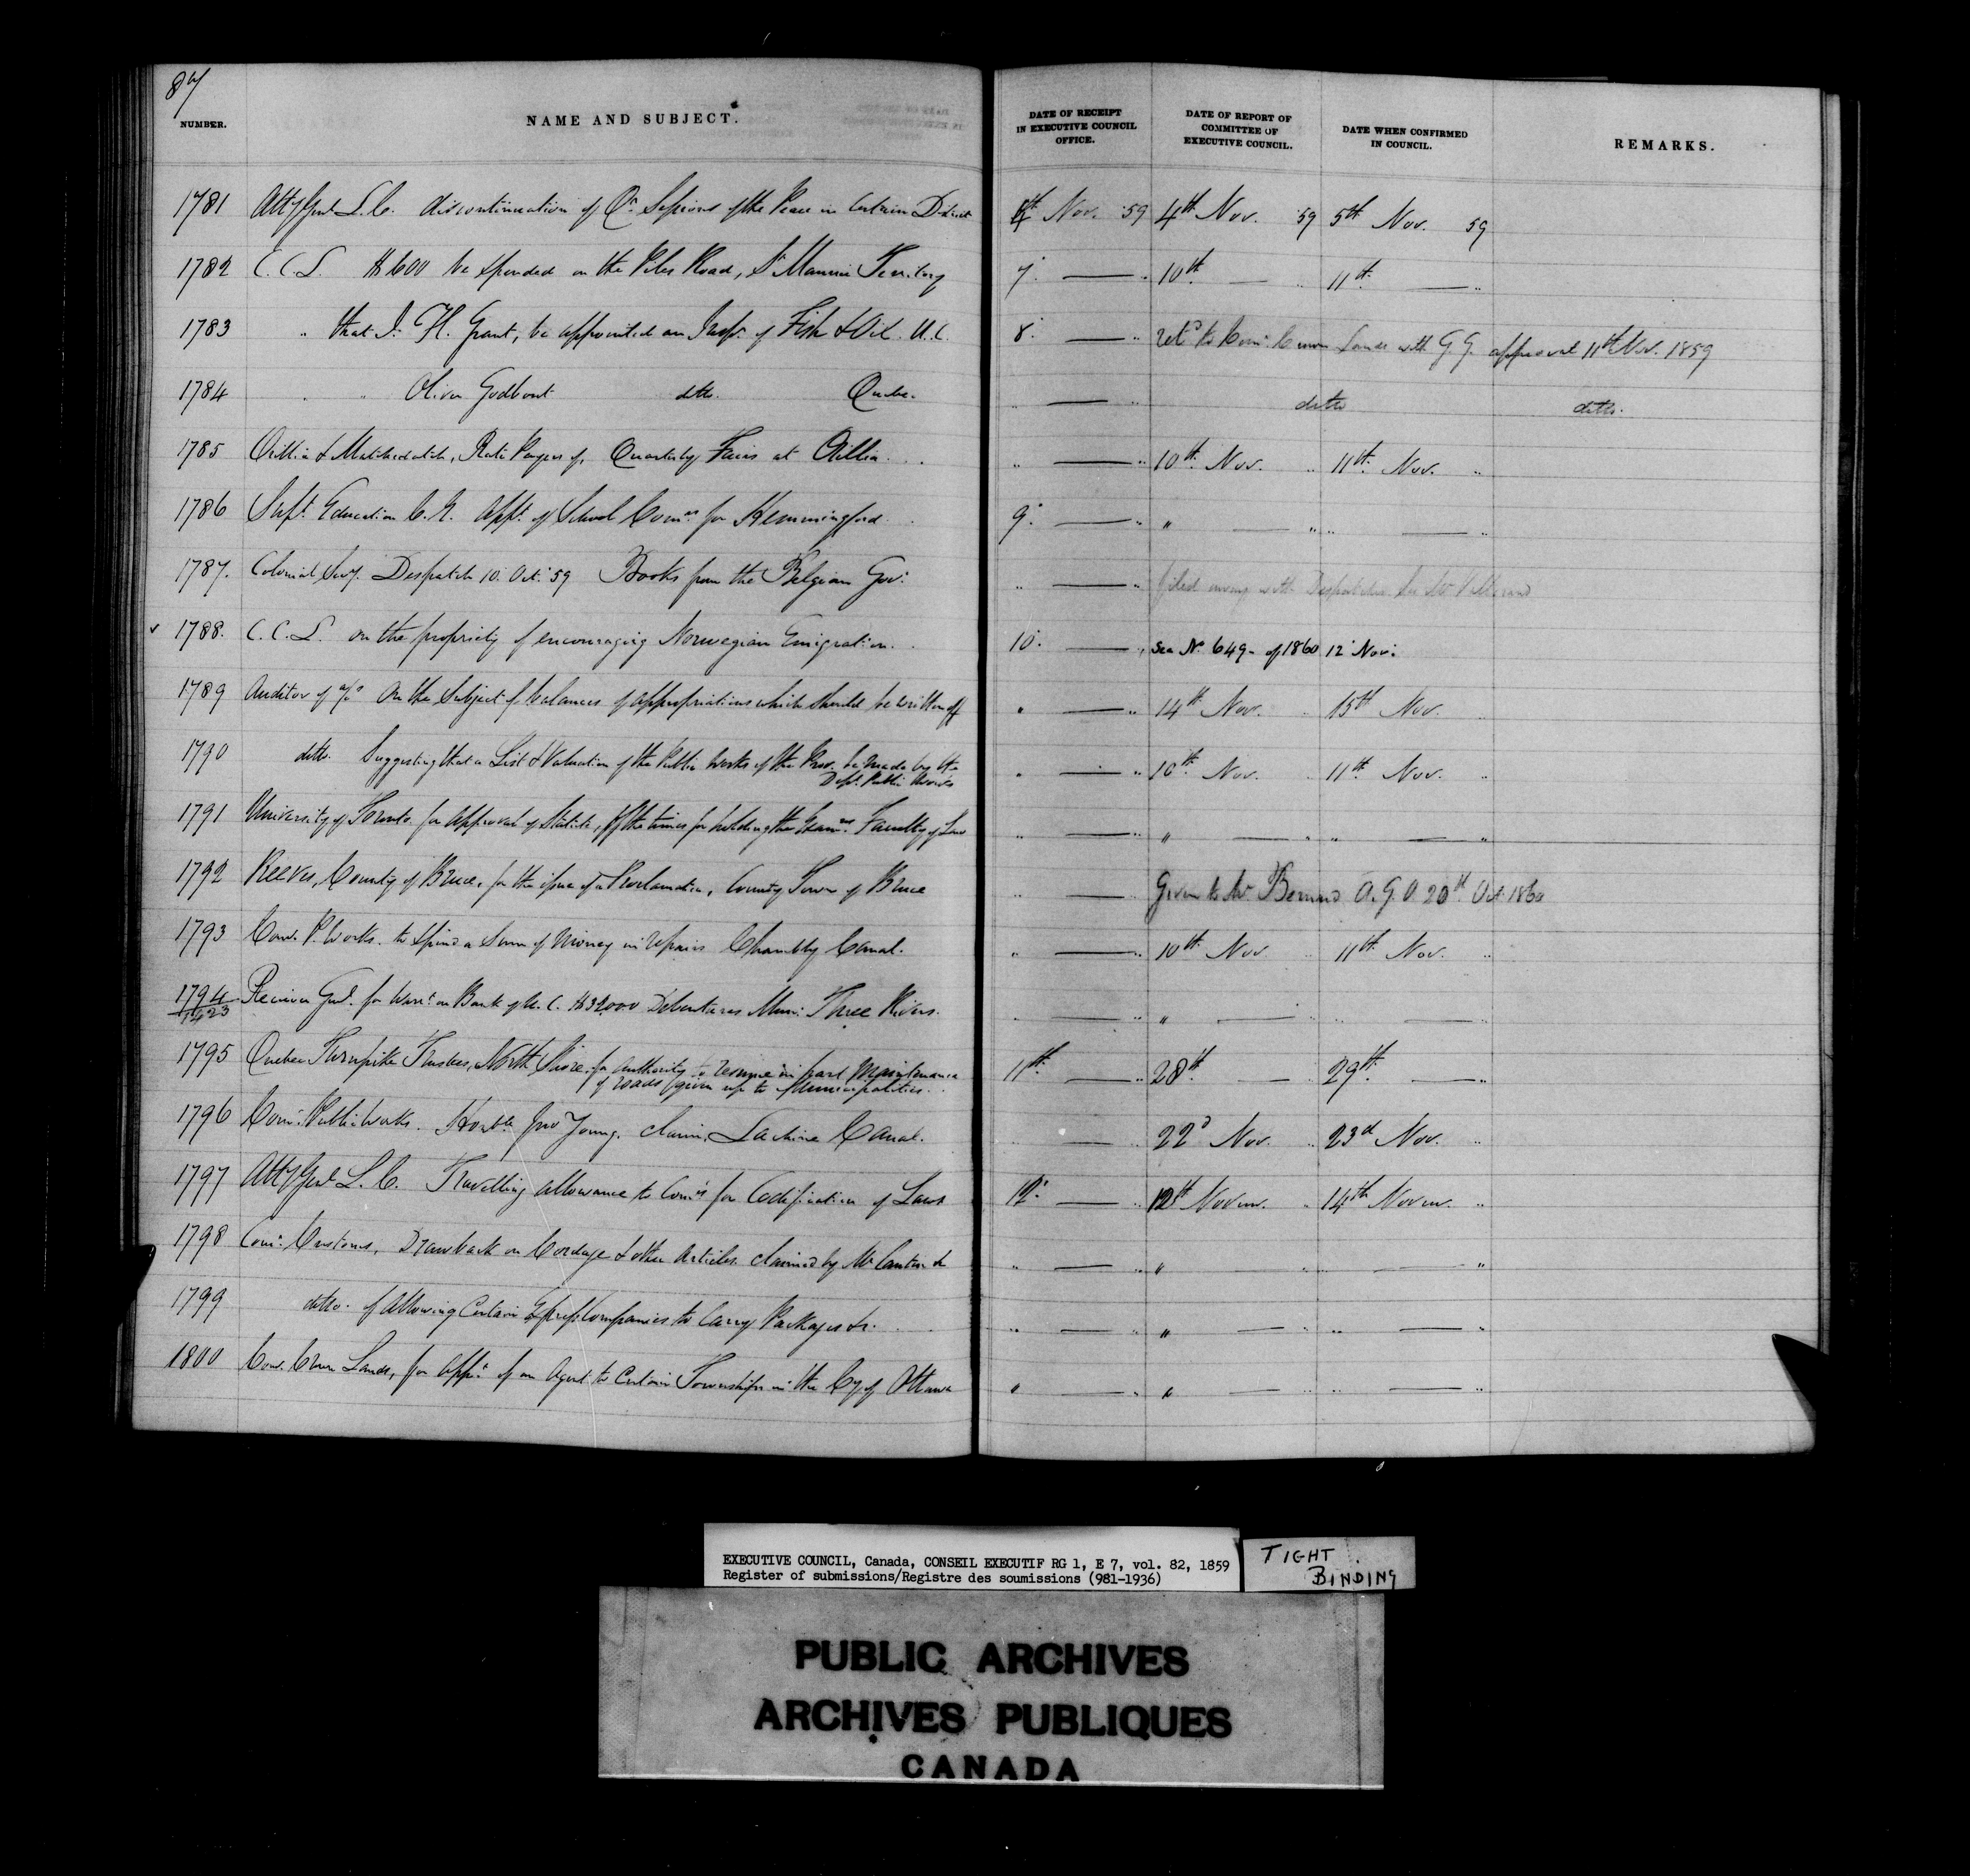 87
NUMBER. NAME AND SUBJECT. DATE OF RECEIPT IN EXECUTIVE COUNCIL OFFICE. DATE OF REPORT OF COMMITTEE OF EXECUTIVE COUNCIL. DATE WHEN CONFIRMED IN COUNCIL. REMARKS.
1781 Atty Genl L.C. discontinuation of Qr Sessions of the Peace in Certain District 4th Nov. 59 4th Nov. 59 5th Nov. 59
1782 C.C.L. $600 be expended on the Piles Road, St Maurice Territory 7. — " 10th — " 11th — "
1783 " that J. H. Grant, be appointed an Inspr of Fish & Oil U.C. 8. — " retd to Comr Crown Lands with G.G. approval 11th Nov. 1859
1784 " " Oliver Godbout ditto. Quebec. " — " ditto ditto.
1785 Orillia & Matchedash, Rate Payers of, Quarterly Fairs at Orillia " — " 10th Nov. " 11th Nov. "
1786 Supt Education C.E. Appt of School Comrs for Hemmingford. 9. — " " — " " — "
1787. Colonial Secy. Despatch 10. Oct. 59 Books from the Belgian Gov. " — " filed away with Despatches
1788. C.C.L. on the propriety of encouraging Norwegian Emigration. 10. — " See No 649 - of 1860 12 Nov.
1789 Auditor of a/cs On the Subject of balances of appropriations which should be written off " — " 14th Nov. " 15th Nov. "
1790 ditto. Suggesting that a List & Valuation of the Public Works of the Prov. be made by the
Dept. Public Works " — " 10th Nov. " 11th Nov. "
1791 University of Toronto. for approval of Statute, of the times for holding the Exams Faculty of Law " — " " — " " — "
1792 Reeves, County of Bruce, for the issue of a Proclamation, County Town of Bruce " — Given to Mr Bernard A.G.O. 20th Oct 1860
1793 Com. P. Works. to Spend a Sum of Money in repairs Chambly Canal. " — " 10th Nov " 11th Nov. "
1794/1423 Receiver Genl. for Warrt on Bank of U.C. $32000 Debentures Muni: Three Rivers. " — " " — " " — "
1795 Quebec Turnpike Trustees, North Shore. for authority to resume in part Maintenance
of roads given up to Municipalities. 11th — " 28th — " 29th — "
1796 Com. Public Works. Honble Jno Young. claim, Lachine Canal. " — " 22d Nov. " 23d Nov. "
1797 Atty Genl L.C. Travelling allowance to Comrs for Codification of Laws 12. — " 12th Novem. " 14th Novem. "
1798 Com. Customs, Drawback on Cordage & other Articles claimed by Mr Cantin &c " — " " — " " — "
1799 ditto. of Allowing Certain Express Companies to Carry Packages &c. " — " " — " " — "
1800 Com. Crown Lands, for Appt of an Agent to Certain Townships in the Cy of Ottawa " — " " — " " — "
EXECUTIVE COUNCIL, Canada, CONSEIL EXECUTIF RG 1, E 7, vol. 82, 1859
Register of submissions/Registre des soumissions (981-1936)
TIGHT
BINDING
PUBLIC ARCHIVES
ARCHIVES PUBLIQUES
CANADA